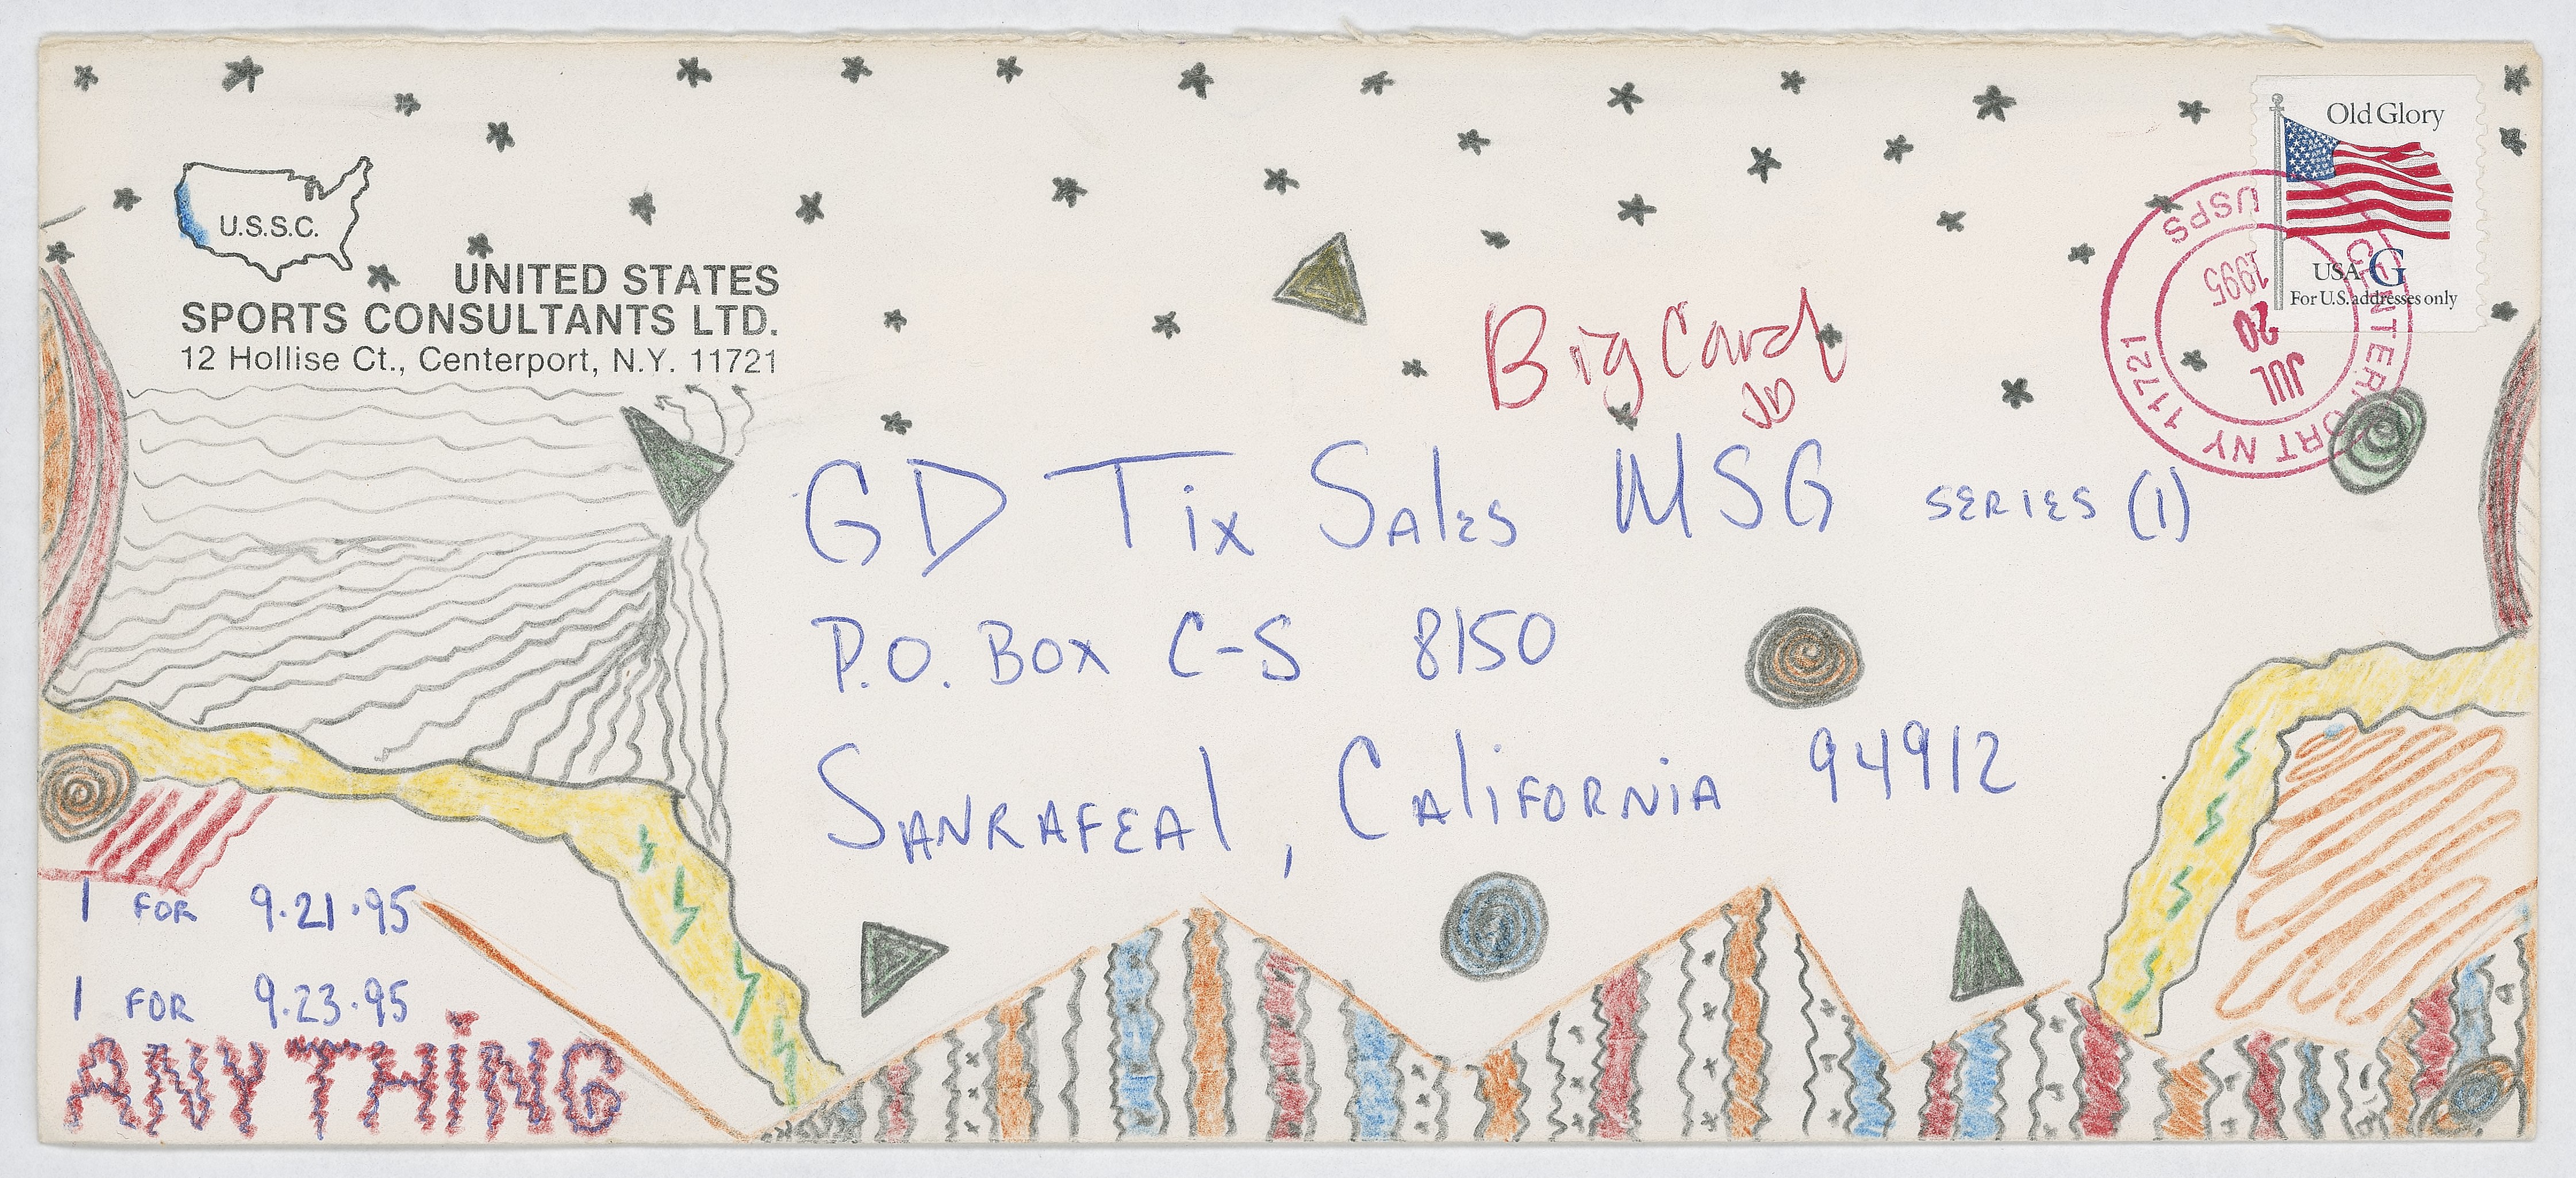 U.S.S.C.
UNITED STATES
SPORTS CONSULTANTS LTD.
12 Hollise Ct., Centerport, N.Y. 11721
Old Glory
USA G
For U.S. addresses only
USPS
CENTERPORT NY 11721
JUL
20
1995
Big Card
GD Tix Sales MSG SERIES (1)
P.O. Box C-S 8150
SANRAFEAl, CAliFORNiA 94912
1 FOR 9.21.95
1 FOR 9.23.95
ANYTHING